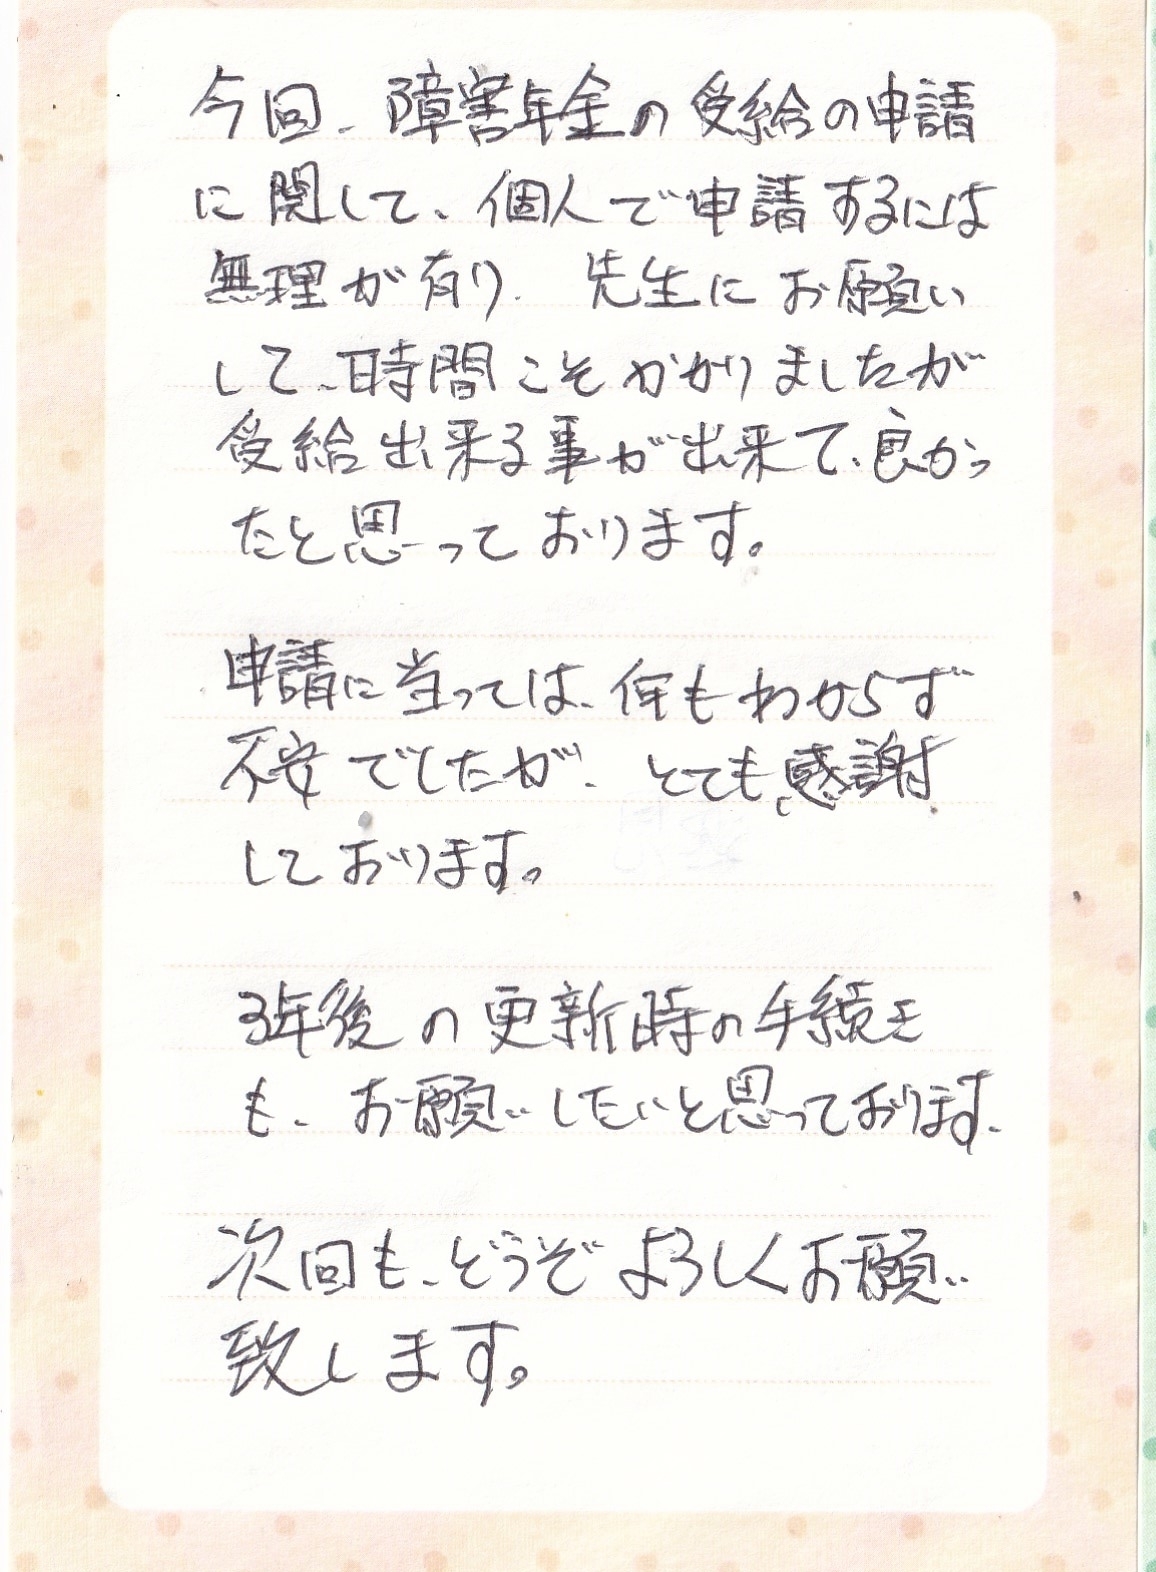 今回、障害年金の受給の申請
に関して、個人で申請するには
無理が有り、先生にお願い
して、時間こそかかりましたが
受給出来る事が出来て、良かっ
たと思っております。
申請に当っては、何もわからず
不安でしたが、とても感謝
しております。
3年後の更新時の手続き
も、お願いしたいと思っております、
次回も、どうぞよろしくお願い
致します。